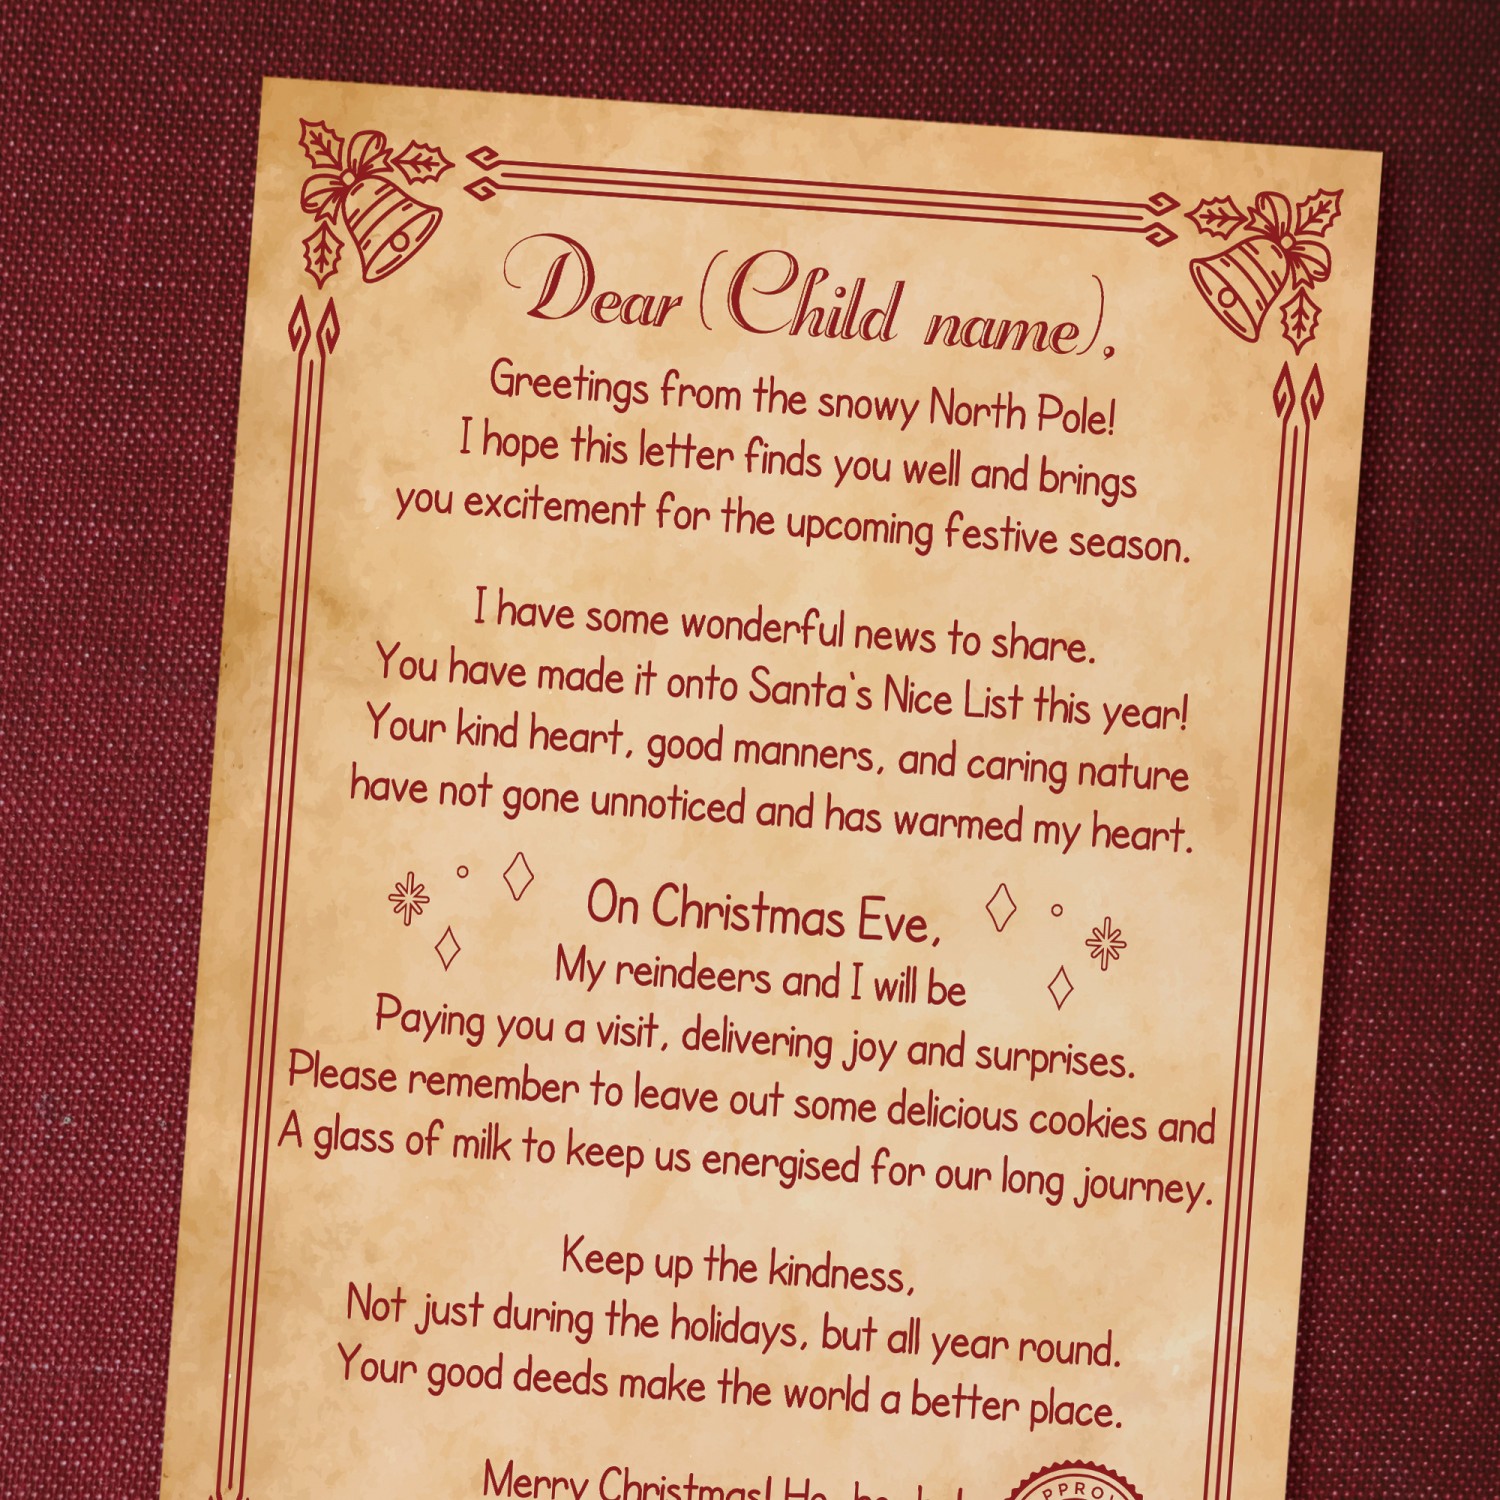 Dear (Child name),
Greetings from the snowy North Pole!
I hope this letter finds you well and brings
you excitement for the upcoming festive season.
I have some wonderful news to share.
You have made it onto Santa`s Nice List this year!
Your kind heart, good manners, and caring nature
have not gone unnoticed and has warmed my heart.
On Christmas Eve,
My reindeers and I will be
Paying you a visit, delivering joy and surprises.
Please remember to leave out some delicious cookies and
A glass of milk to keep us energised for our long journey.
Keep up the kindness,
Not just during the holidays, but all year round.
Your good deeds make the world a better place.
Merry Christmas!